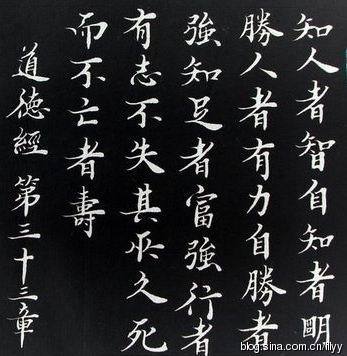 知人者智自知者明
勝人者有力自勝者
強知足者富強行者
有志不失其所久死
而不亡者壽
道德經 第三十三章
blog.sina.com.cn/flyy